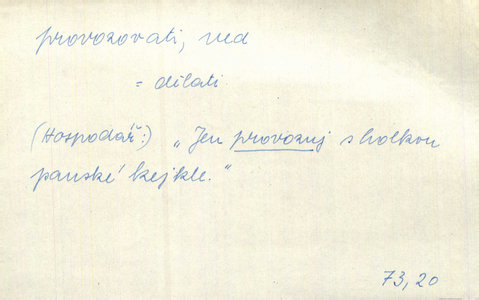 provozovati, ned
= dělati
(Hospodář:) „Jen provozuj s holkou
panské kejkle.“
73, 20